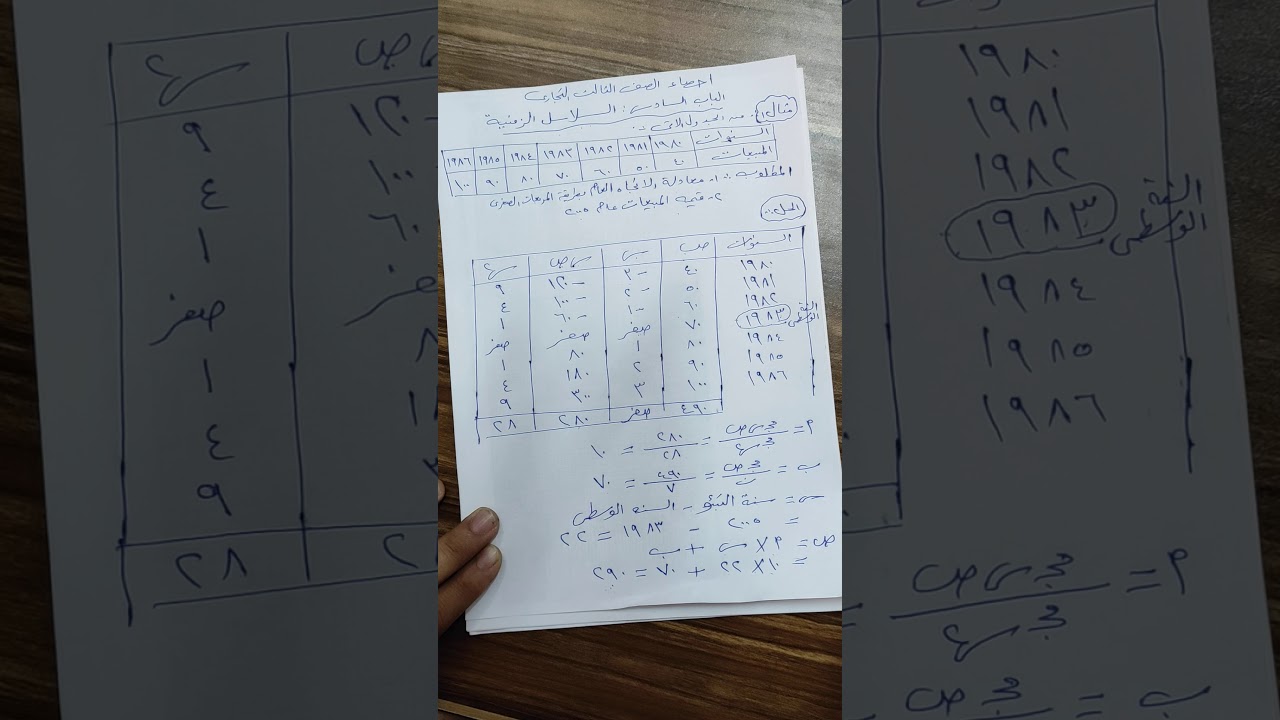 احصاء الصف الثالث التجارى
الباب السادس : السلاسل الزمنية
مثال ١ : من الجدول الاتى :-
السنوات ١٩٨٠ ١٩٨١ ١٩٨٢ ١٩٨٣ ١٩٨٤ ١٩٨٥ ١٩٨٦
المبيعات ٤٠ ٥٠ ٦٠ ٧٠ ٨٠ ٩٠ ١٠٠
المطلوب :- ١- معادلة الاتجاه العام بطريقة المربعات الصغرى
٢- قيمة المبيعات عام ٢٠٠٥
الحل :-
السنوات ص س س ص س٢
١٩٨٠ ٤٠ -٣ -١٢٠ ٩
١٩٨١ ٥٠ -٢ -١٠٠ ٤
١٩٨٢ ٦٠ -١ -٦٠ ١
الفترة الوسطى ١٩٨٣ ٧٠ صفر صفر صفر
١٩٨٤ ٨٠ ١ ٨٠ ١
١٩٨٥ ٩٠ ٢ ١٨٠ ٤
١٩٨٦ ١٠٠ ٣ ٣٠٠ ٩
٤٩٠ صفر ٢٨٠ ٢٨
م = مجـ س ص / مجـ س٢ = ٢٨٠ / ٢٨ = ١٠
ب = مجـ ص / ن = ٤٩٠ / ٧ = ٧٠
س = سنة التنبؤ - السنة الوسطى
= ٢٠٠٥ - ١٩٨٣ = ٢٢
ص = م × س + ب
= ١٠ × ٢٢ + ٧٠ = ٢٩٠